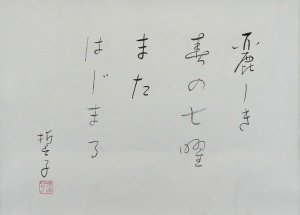 麗しき
春の七曜
また
はじまる
哲子